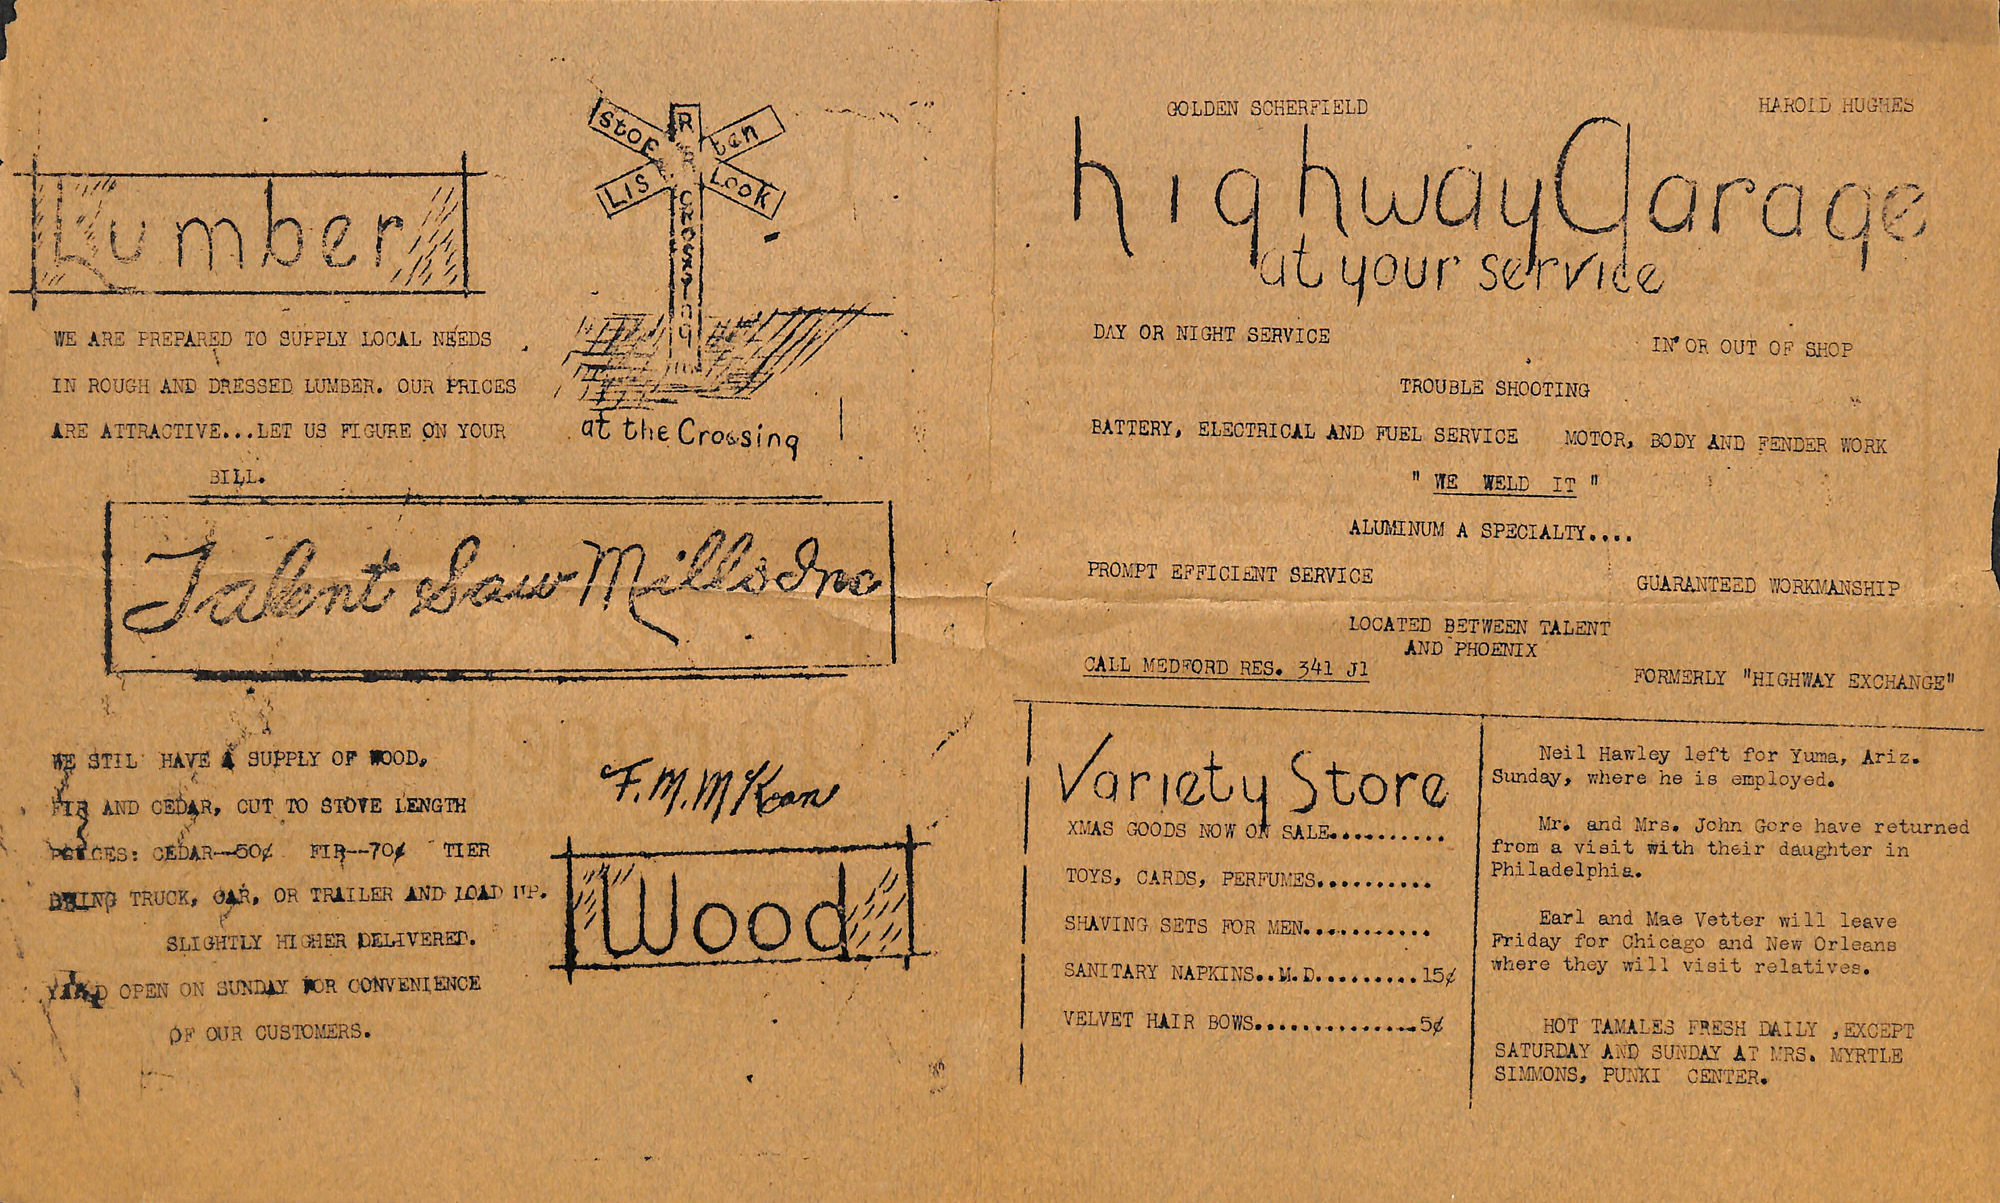 Lumber
WE ARE PREPARED TO SUPPLY LOCAL NEEDS
IN ROUGH AND DRESSED LUMBER. OUR PRICES
ARE ATTRACTIVE...LET US FIGURE ON YOUR
BILL.
Stop
R
ten
R
LIS
Look
CROSSING
at the Crossing
Talent Saw Mills Inc
WE STIL HAVE A SUPPLY OF WOOD,
FIR AND CEDAR, CUT TO STOVE LENGTH
PRICES: CEDAR--50¢ FIR--70¢ TIER
BRING TRUCK, CAR, OR TRAILER AND LOAD UP.
SLIGHTLY HIGHER DELIVERED.
YARD OPEN ON SUNDAY FOR CONVENIENCE
OF OUR CUSTOMERS.
F. M. McKean
Wood
GOLDEN SCHERFIELD HAROLD HUGHES
highway Garage
at your service
DAY OR NIGHT SERVICE IN OR OUT OF SHOP
TROUBLE SHOOTING
BATTERY, ELECTRICAL AND FUEL SERVICE MOTOR, BODY AND FENDER WORK
" WE WELD IT "
ALUMINUM A SPECIALTY....
PROMPT EFFICIENT SERVICE GUARANTEED WORKMANSHIP
LOCATED BETWEEN TALENT
AND PHOENIX
CALL MEDFORD RES. 341 J1 FORMERLY "HIGHWAY EXCHANGE"
Variety Store
XMAS GOODS NOW ON SALE..........
TOYS, CARDS, PERFUMES..........
SHAVING SETS FOR MEN...........
SANITARY NAPKINS..M.D.........15¢
VELVET HAIR BOWS..............5¢
Neil Hawley left for Yuma, Ariz.
Sunday, where he is employed.
Mr. and Mrs. John Gore have returned
from a visit with their daughter in
Philadelphia.
Earl and Mae Vetter will leave
Friday for Chicago and New Orleans
where they will visit relatives.
HOT TAMALES FRESH DAILY ,EXCEPT
SATURDAY AND SUNDAY AT MRS. MYRTLE
SIMMONS, PUNKI CENTER.